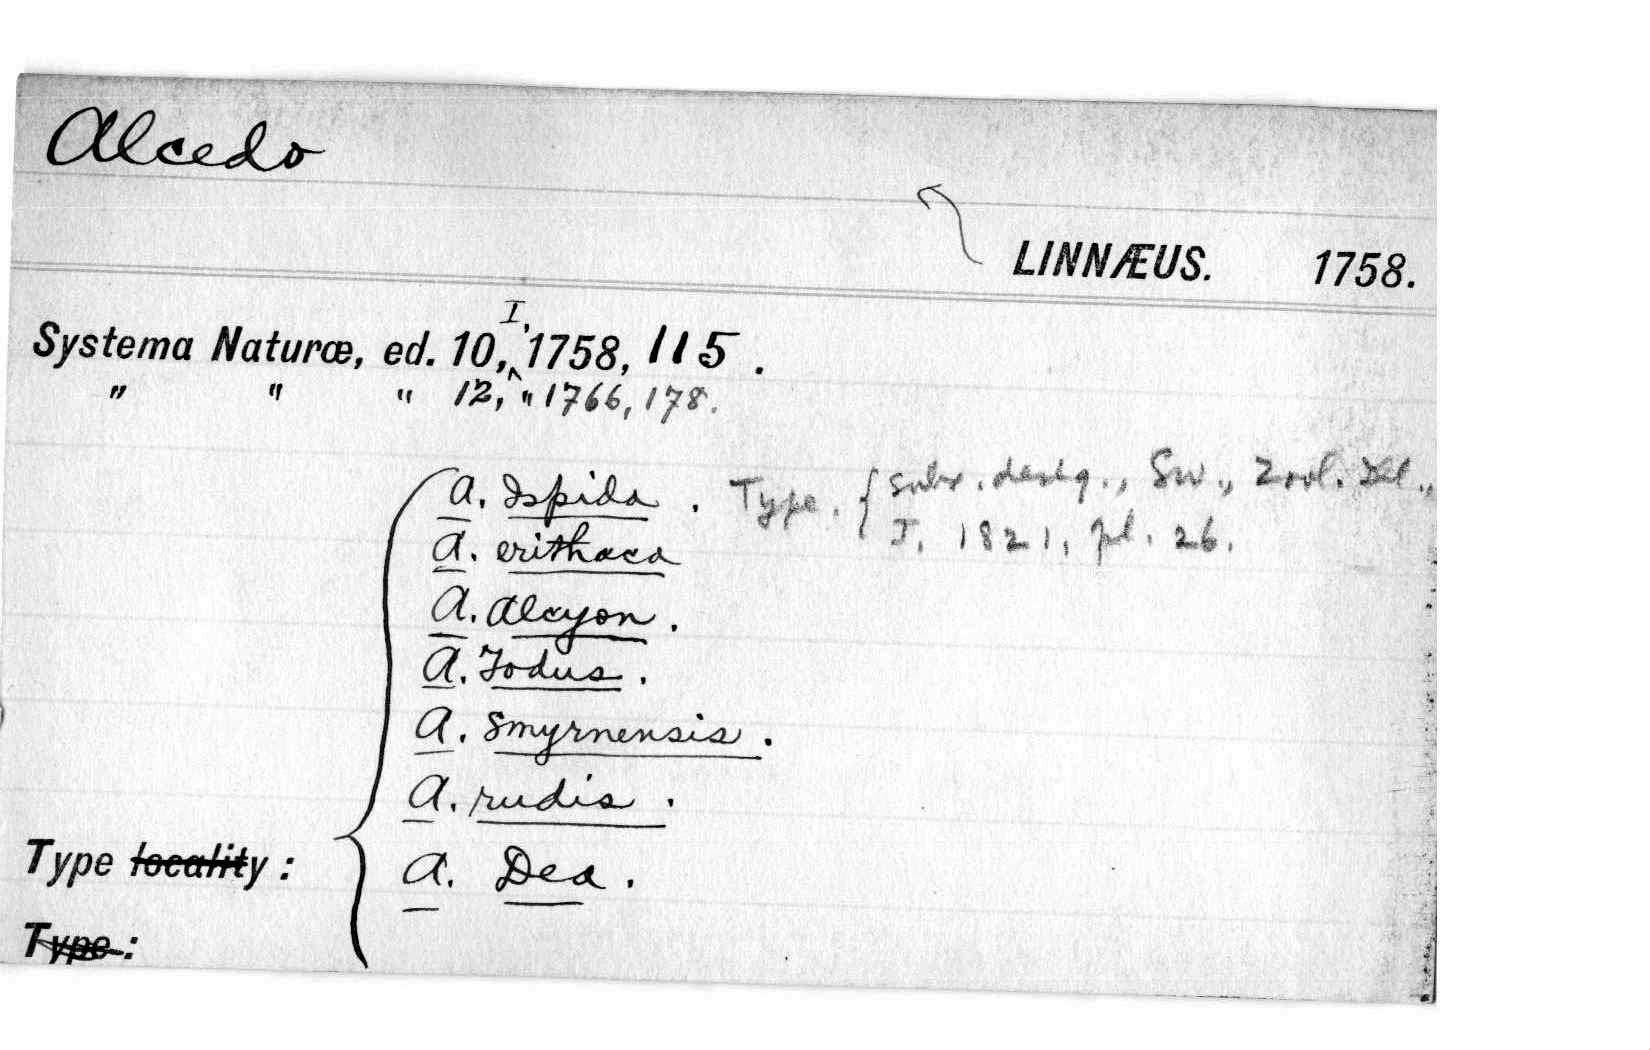 Alcedo
LINNÆUS. 1758.
Systema Naturæ, ed. 10, I, 1758, 115.
" " " 12, " 1766, 178.
A. Ispida. Type. { subs. desig., Sw., Zool. Ill.,
I, 1821, pl. 26.
A. erithaca
A. Alcyon.
A. Todus.
A. Smyrnensis.
A. rudis.
Type locality:
A. Dea.
Type: